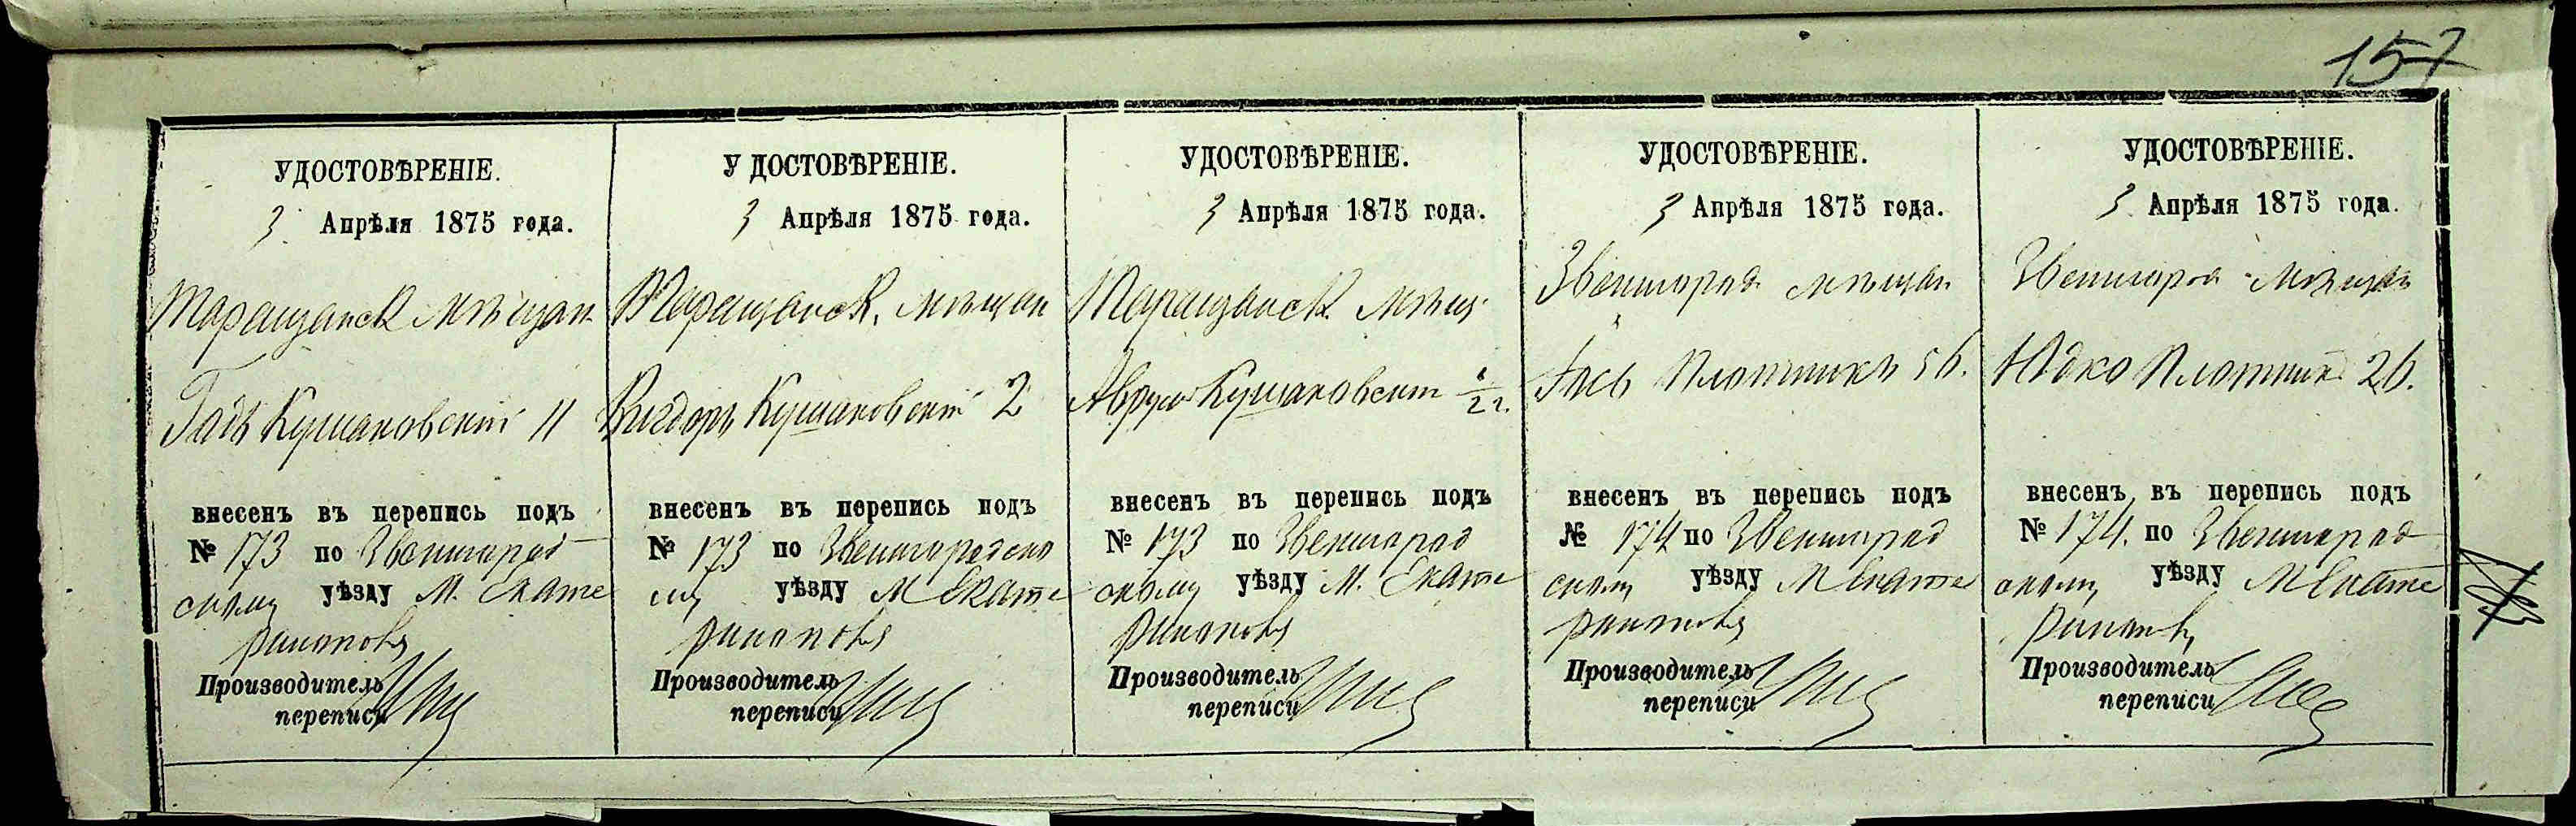 157
УДОСТОВѢРЕНІЕ.
3 Апрѣля 1875 года.
Таращанск мѣщан
Гось Кушнаковскій 11
внесенъ въ перепись подъ
№ 173 по Звенигород
скому уѣзду М. Екате
ринополь
Производитель
переписи
УДОСТОВѢРЕНІЕ.
3 Апрѣля 1875 года.
Таращанск. мѣщан
Вигдоръ Кушнаковскій 2
внесенъ въ перепись подъ
№ 173 по Звенигородско
му уѣзду М Екате
ринополь
Производитель
переписи
УДОСТОВѢРЕНІЕ.
3 Апрѣля 1875 года.
Таращанск. мѣщ.
Аврум Кушнаковскій 1/2 г.
внесенъ въ перепись подъ
№ 173 по Звенигород
скому уѣзду М. Екате
ринополь
Производитель
переписи
УДОСТОВѢРЕНІЕ.
3 Апрѣля 1875 года.
Звенигород мѣщан
Плотникъ 56.
внесенъ въ перепись подъ
№ 174 по Звенигород
скому уѣзду М Екате
ринополь
Производитель
переписи
УДОСТОВѢРЕНІЕ.
3 Апрѣля 1875 года.
Звенигород мѣщан
Юдко Плотник 26.
внесенъ въ перепись подъ
№ 174. по Звенигород
скому уѣзду М Екате
ринополь
Производитель
переписи